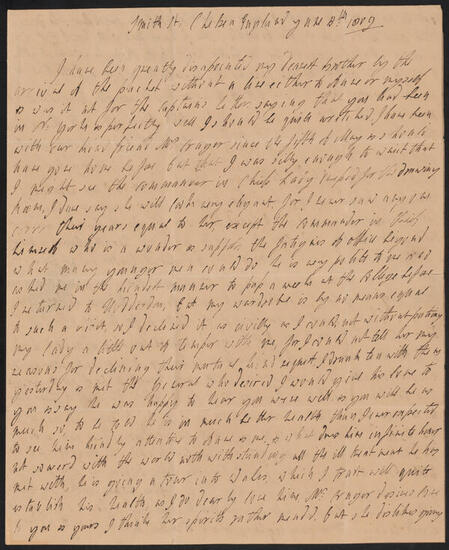 Smith St. Chelsea England June 8th 1809
I have been greatly disapointed my dearest brother by the
arrival of the packet without a line either to Anne or myself
& was it not for the Captains letter saying that you had been
in N. York & perfectly well I should be quite wretched, I have been
with our kind friend Mrs Cruger since the fifth of May & should
have gone home before but that I was silly enough to want that
I might see the Commander in Chiefs Lady for the drawing
room, I dare say she will look very elegant, for I never saw any one
their years equal to her, except the Commander in Chief
himself who is a wonder & supports the fatigues of office beyond
what many younger men could do he is very polite to me and
asked me in the kindest manner to pass a week at the College before
I returned to but my wardrobe is by no means equal
to such a visit, so I declined it as civilly as I could not without putting
my Lady a little out of temper with me, for I could not tell her my
reasons for declining their mutual kind request I drank tea with them
yesterday & met the General who desired I would give his love to
you & say he was happy to hear you were well & you will be as
much so, to be told he is in much better health than I ever expected
to see him his kind attention to Anne & me, does him infinite honor
with the world notwithstanding all the ill treatment he has
met with, he is giving a tour into Wales, which I trust will quite
establish his health, as I do dearly love him, Mrs Cruger desires love
to you & yours I think her spirits rather mend. but she dislikes going